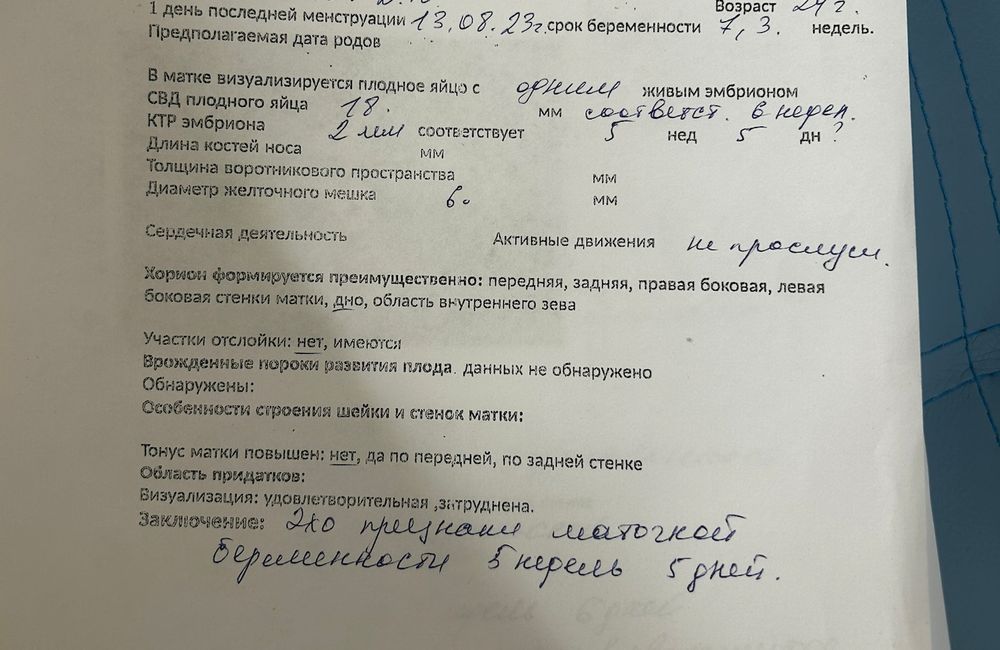 Возраст 24 г.
1 день последней менструации 13.08.23г. срок беременности 7,3. недель.
Предполагаемая дата родов
В матке визуализируется плодное яйцо с одним живым эмбрионом
СВД плодного яйца 18. мм соответст. 6 недел.
КТР эмбриона 2 мм соответствует 5 нед 5 дн ?
Длина костей носа мм
Толщина воротникового пространства мм
Диаметр желточного мешка 6. мм
Сердечная деятельность Активные движения не прослуш.
Хорион формируется преимущественно: передняя, задняя, правая боковая, левая
боковая стенки матки, дно, область внутреннего зева
Участки отслойки: нет, имеются
Врожденные пороки развития плода. данных не обнаружено
Обнаружены:
Особенности строения шейки и стенок матки:
Тонус матки повышен: нет, да по передней, по задней стенке
Область придатков:
Визуализация: удовлетворительная ,затруднена.
Заключение: Эхо признаки маточной
беременности 5 недель 5 дней.